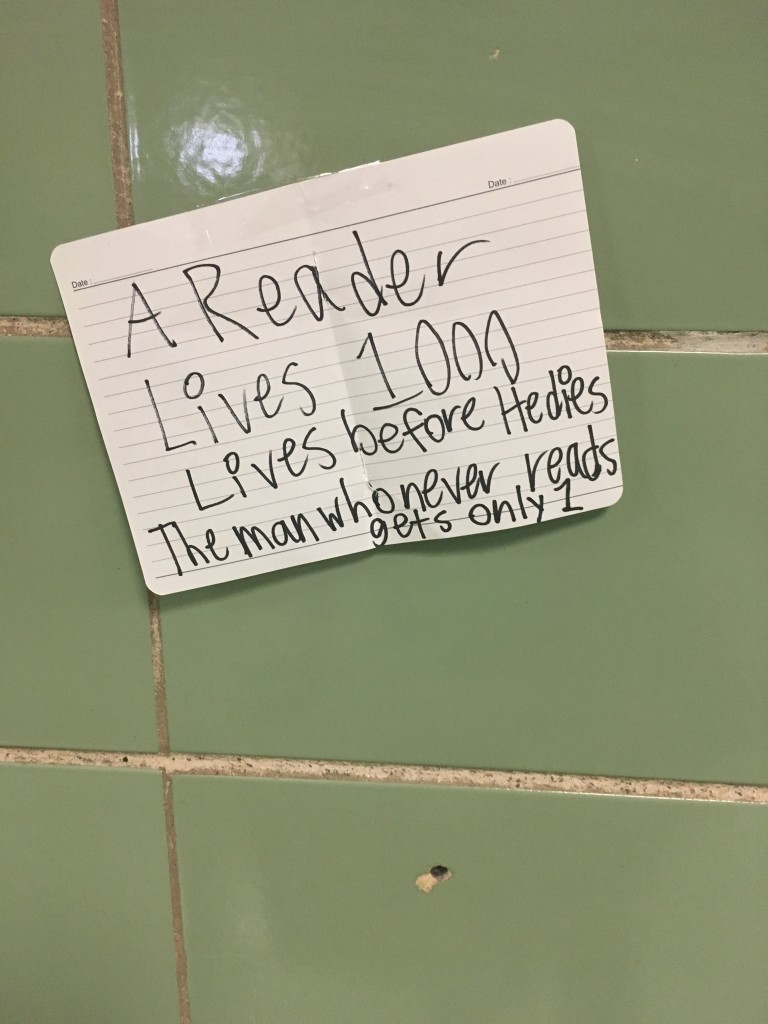 Date:
Date:
A Reader
Lives 1000
Lives before Hedies
The man who never reads
gets only 1